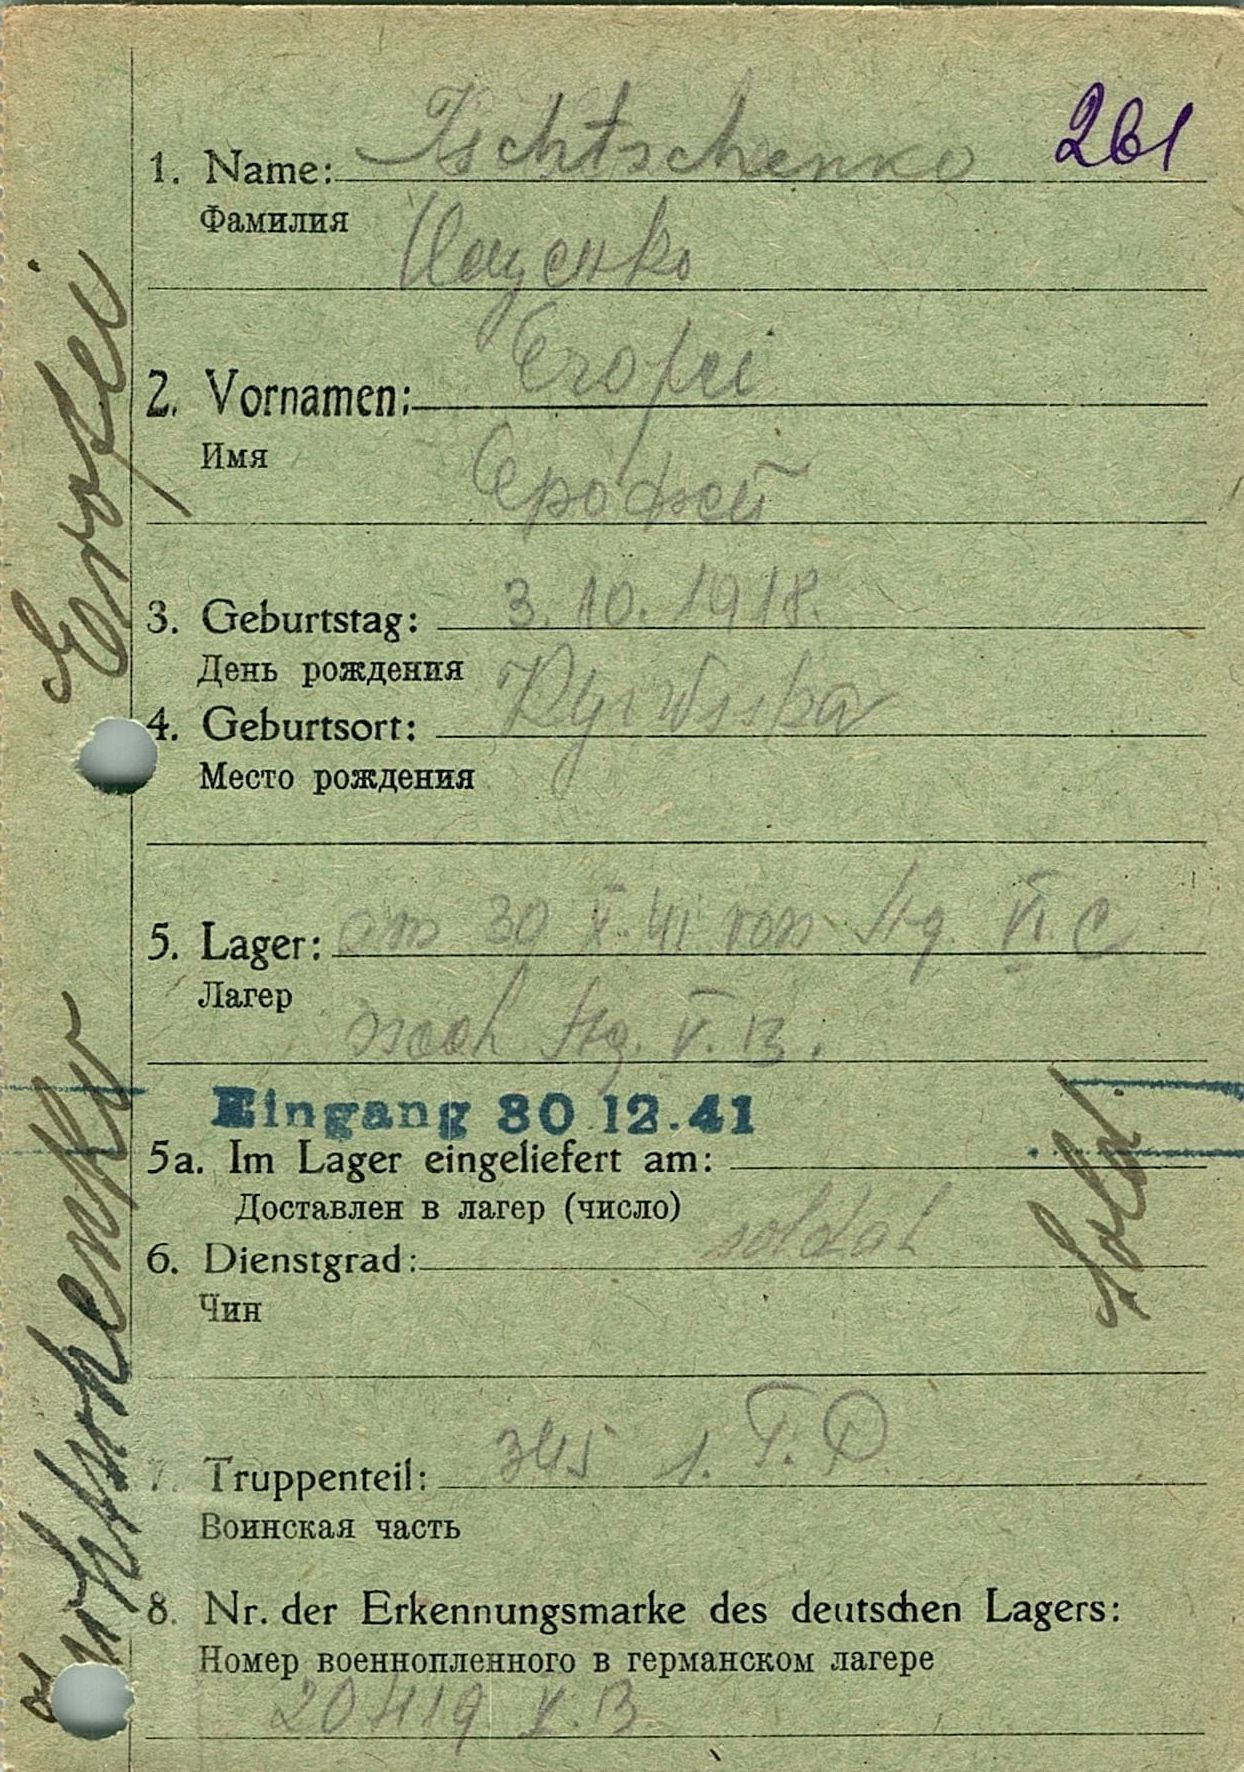 261
1. Name: Ischtschenko
Фамилия
Ищенко
2. Vornamen: Erofei
Имя
Ерофей
3. Geburtstag: 3. 10. 1918.
День рождения
4. Geburtsort:
Место рождения
5. Lager: am 30 X. 41 von Stg VI. C
Лагер
nach Stg. V. B.
Eingang 30.12.41
5a. Im Lager eingeliefert am:
Доставлен в лагер (число)
6. Dienstgrad: soldat
Чин
Sold.
7. Truppenteil: 345 1. T. D
Воинская часть
8. Nr. der Erkennungsmarke des deutschen Lagers:
Номер военнопленного в германском лагере
20419 V. B
Erofei